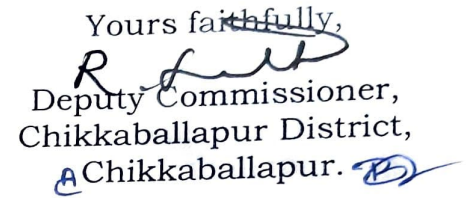 Yours faithfully,
Deputy Commissioner,
Chikkaballapur District,
Chikkaballapur.